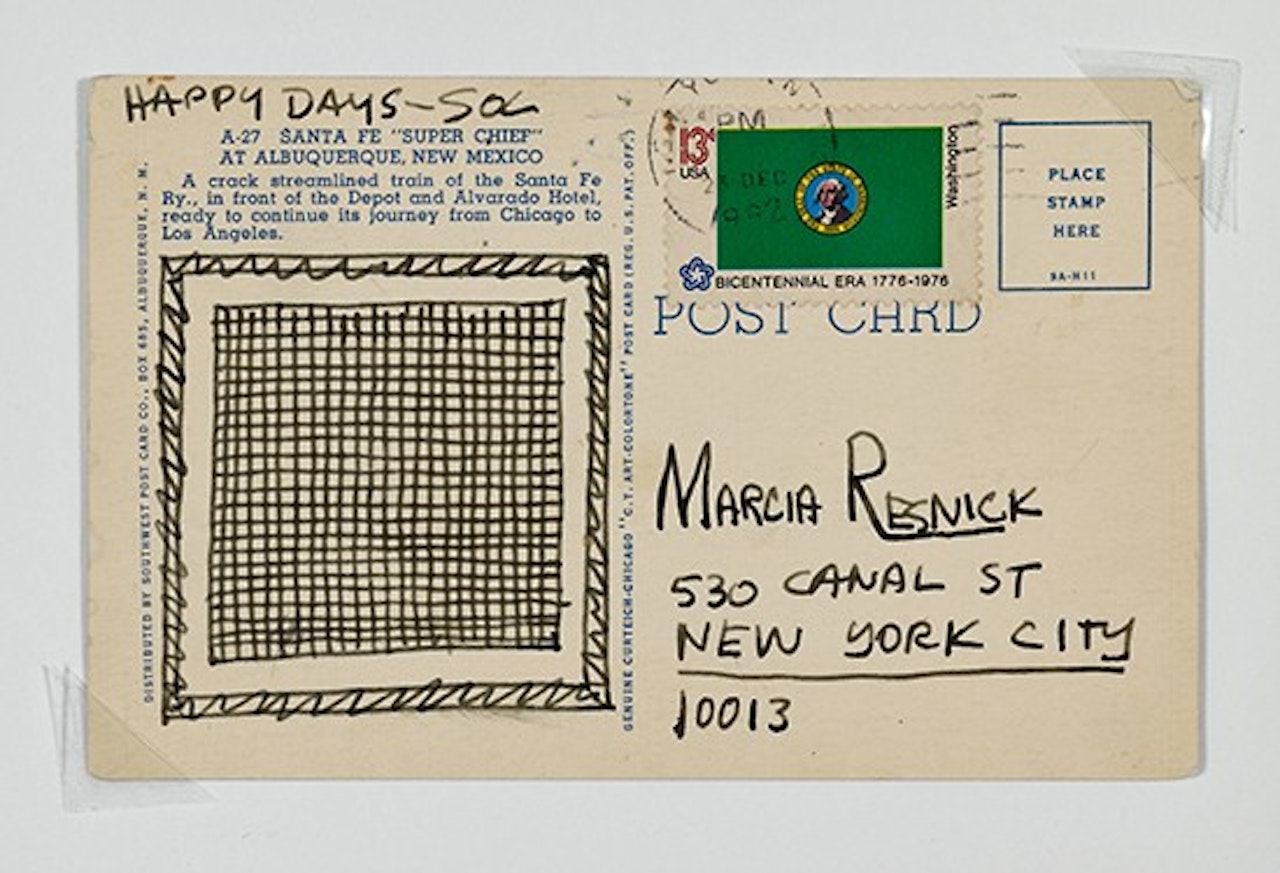 HAPPY DAYS-SOL
A-27 SANTA FE "SUPER CHIEF"
AT ALBUQUERQUE, NEW MEXICO
A crack streamlined train of the Santa Fe
Ry., in front of the Depot and Alvarado Hotel,
ready to continue its journey from Chicago to
Los Angeles.
DISTRIBUTED BY SOUTHWEST POST CARD CO., BOX 685, ALBUQUERQUE, N. M.
GENUINE CURTEICH-CHICAGO "C.T. ART-COLORTONE" POST CARD (REG. U.S. PAT. OFF.)
PM
DEC
13¢
USA
Washington
BICENTENNIAL ERA 1776-1976
POST CARD
PLACE
STAMP
HERE
9A-H11
MARCIA RESNICK
530 CANAL ST
NEW YORK CITY
10013